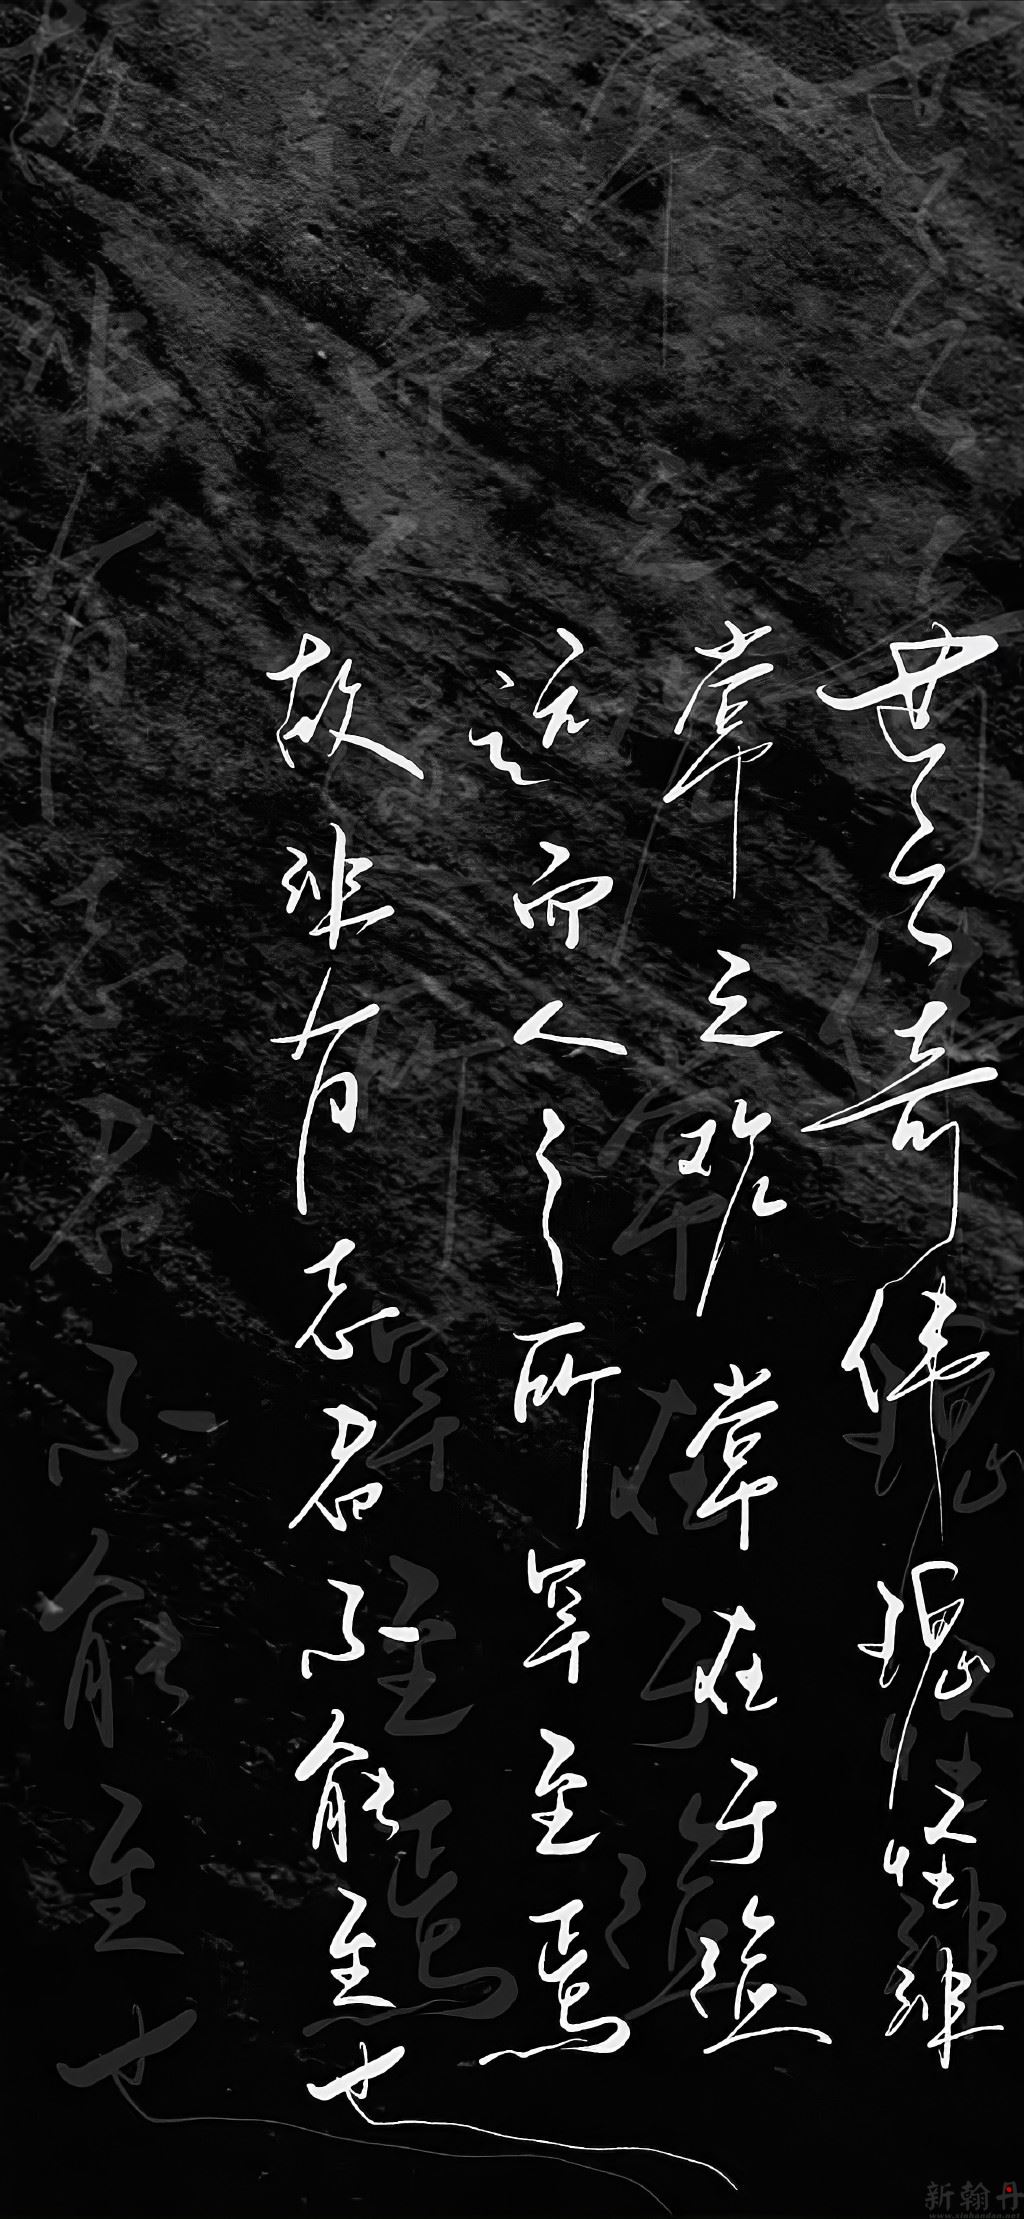 世之奇伟瑰怪非
常之观常在于险
远而人之所罕至焉
故非有志者不能至也
新翰丹
www.xinhandan.net